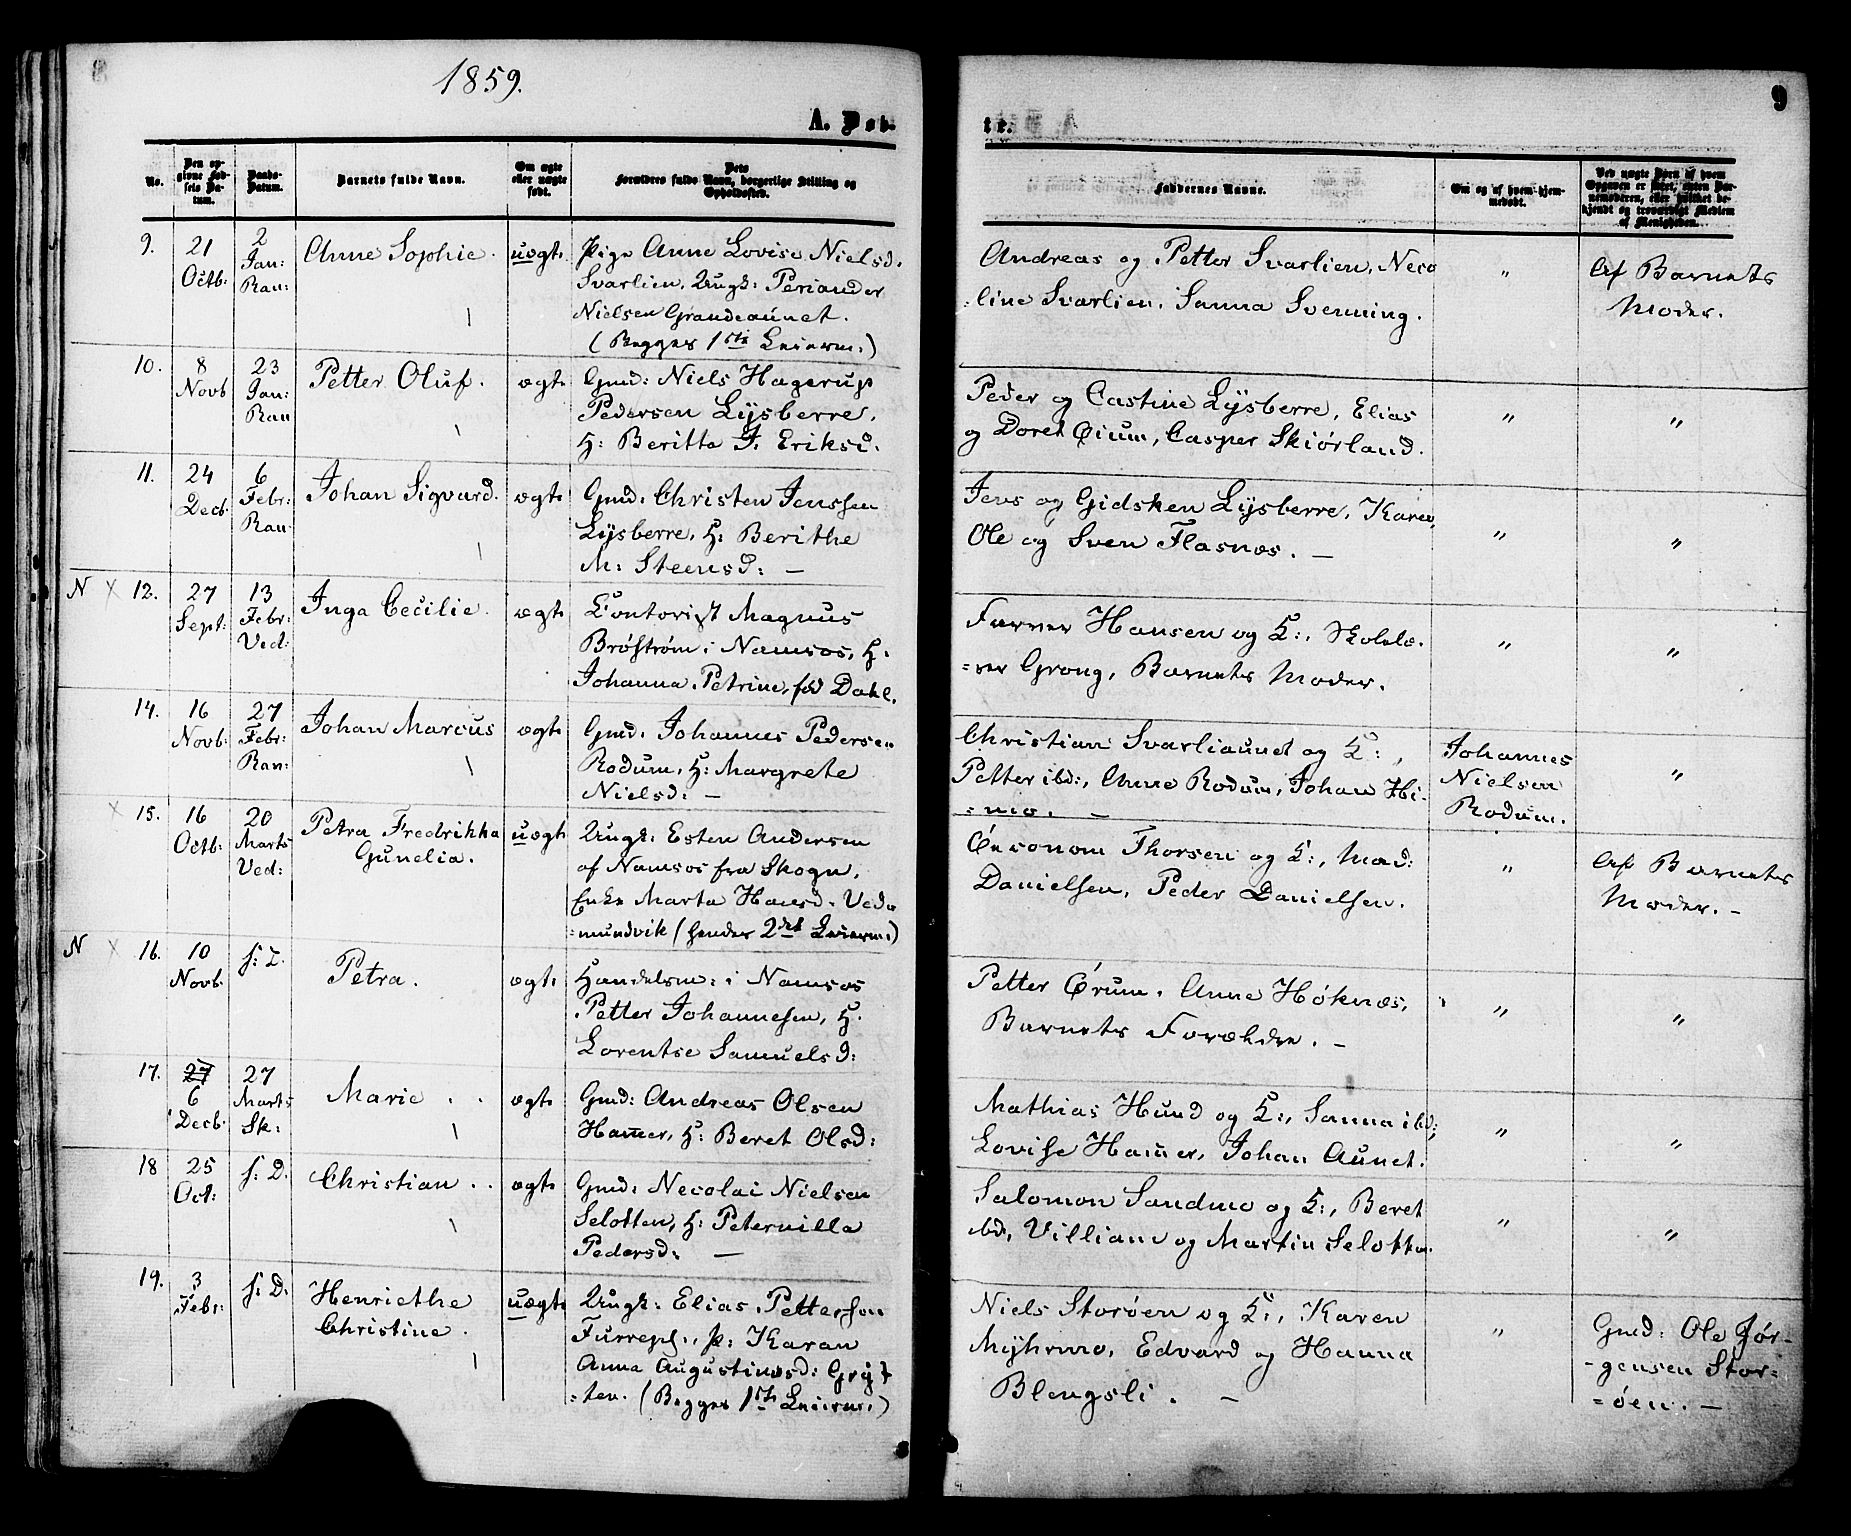 8
1859.
A. Døb-
No.
Den op-
givne Fød-
sels Da-
tum.
Daabs-
Datum.
Barnets fulde Navn.
Om ægte
eller uægte
født.
Dets
Forældres fulde Navn, borgerlige Stilling og
Opholdssted.
9.
21
Octb:
2
Jan:
Ran:
Anne Sophie.
uægt.
Pige Anne Lovise Nielsd.
Svarlien. Ungk: Periander
Nielsen Grandeaunet.
(Begges 1ste Leierm.)
10.
8
Novb
23
Jan:
Ran
Petter Oluf.
ægt.
Gmd: Niels Hagerup
Pedersen Lysberre,
H: Beritta J. Eriksd.
11.
24
Decb.
6
Febr:
Ran
Johan Sigvard.
ægt.
Gmd. Christen Jenssen
Lysberre, H: Berithe
M: Steensd: —
N × 12.
27
Sept:
13
Febr:
Ved:
Inga Cecilie.
ægt.
Contorist Magnus
Brøstrøm i Namsos, H:
Johanna Petrine, fød Dahl.
14.
16
Novb:
27
Febr:
Ran:
Johan Marcus
ægt.
Gmd. Johannes Pedersen
Rodum, H: Margrete
Nielsd: —
× 15.
16
Octb:
20
Marts
Ved:
Petra Fredrikka
Gunelia.
uægt
Ungk: Esten Andersen
af Namsos fra Skogn,
Enke Marta Hansd. Ved-
=mundvik (hendes 2det Leierm.)
N × 16.
10
Novb.
s: T.
Petra.
ægt.
Handelsm: i Namsos
Petter Johannesen, H.
Lorentse Samuelsd:
17.
27
6
Decb.
27
Marts
Sk:
Marie . .
ægt.
Gmd: Andreas Olsen
Hammer, H: Beret Olsd:
18
25
Oct:
s: D.
Christian . .
ægt.
Gmd: Necolai Nielsen
Selotten, H: Peternilla
Pedersd: —
19.
3
Febr:
s: D.
Henriethe
Christine.
uægt.
Ungk: Elias Petterson
P: Karan
Anna Augustinusd: Gryt
=ten. (Begges 1ste Leierm.)
9
te.
Faddernes Navne.
Om og af hvem hjem-
medøbt.
Ved uægte Børn af hvem
Opgaven er skeet, enten Bar-
nemoderen, eller hvilket be-
kjendt og troværdigt Medlem
af Menigheden.
Andreas og Petter Svarlien, Neco
=line Svarlien. Sanna Svenning.
"
Af Barnets
Moder.
Peder og Castine Lysberre, Elias
og Doret Øium, Casper Skiørland.
"
"
Jens og Gidsken Lysberre, Karen,
Ole og Sven Flasnæs. —
"
"
Farver Hansen og K:, Skolelæ.
=rer Grong, Barnets Moder.
"
"
Christian Svarliaunet og K:,
Petter ibd:, Anne Rodum, Johan Hi-
=mo. —
Johannes
Nielsen
Rodum.
"
Øeconom Thorsen og K:, Mad:
Danielsen, Peder Danielsen.
"
Af Barnets
Moder. —
Petter Ørum, Anne Høknæs,
Barnets Forældre. —
"
"
Mathias Hund og K:, Sanna ibd:,
Lovise Hammer, Johan Aunet.
"
"
Salomon Sandmo og K:, Beret
ibd, Villiam og Martin Selotten.
"
"
Niels Storøen og K:, Karen
Myhrmo, Edvard og Hanna
Blengsli. —
"
Gmd: Ole Jør-
-gensen Stor-
=øen. —